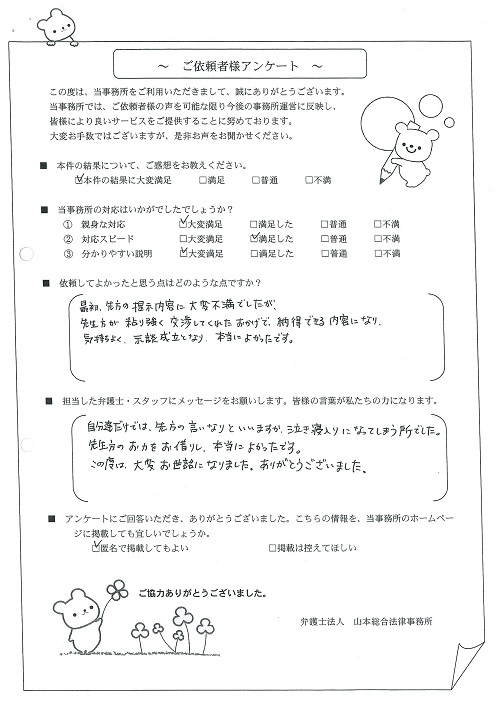 ～　ご依頼者様アンケート　～
この度は、当事務所をご利用いただきまして、誠にありがとうございます。
当事務所では、ご依頼者様の声を可能な限り今後の事務所運営に反映し、
皆様により良いサービスをご提供することに努めております。
大変お手数ではございますが、是非お声をお聞かせください。
■　本件の結果について、ご感想をお教えください。
☑本件の結果に大変満足　□満足　□普通　□不満
■　当事務所の対応はいかがでしたでしょうか？
①　親身な対応　☑大変満足　□満足した　□普通　□不満
②　対応スピード　□大変満足　☑満足した　□普通　□不満
③　分かりやすい説明　☑大変満足　□満足した　□普通　□不満
■　依頼してよかったと思う点はどのような点ですか？
最初、先方の提示内容に大変不満でしたが、
先生方が粘り強く交渉してくれたおかげで、納得できる内容になり、
気持ちよく、示談成立となり、本当によかったです。
■　担当した弁護士・スタッフにメッセージをお願いします。皆様の言葉が私たちの力になります。
自分達だけでは、先方の言いなりといいますか、泣き寝入りになってしまう所でした。
先生方のお力をお借りし、本当によかったです。
この度は、大変お世話になりました。ありがとうございました。
■　アンケートにご回答いただき、ありがとうございました。こちらの情報を、当事務所のホームペー
ジに掲載しても宜しいでしょうか。
☑匿名で掲載してもよい　□掲載は控えてほしい
ご協力ありがとうございました。
弁護士法人　山本総合法律事務所